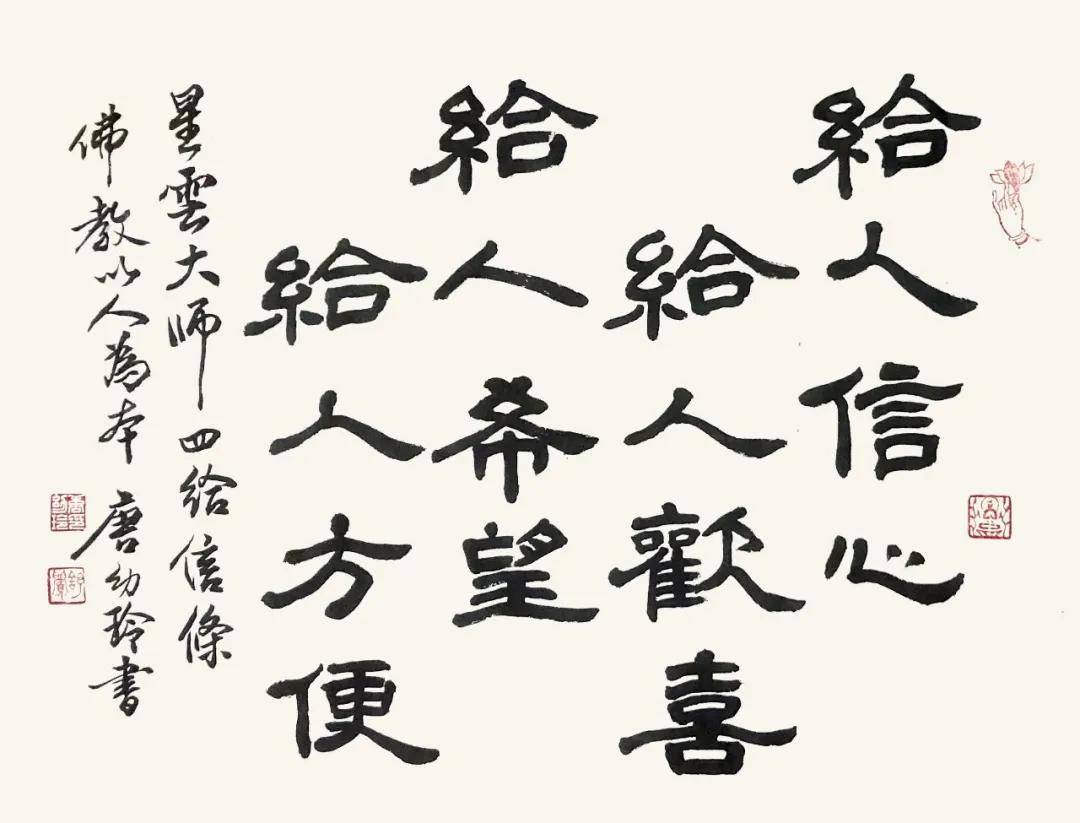 給人信心
給人歡喜
給人希望
給人方便
星雲大師四給信條
佛教以人為本 唐幼玲書